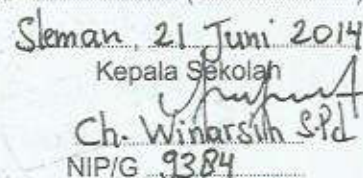 Sleman, 21 Juni 2014
Kepala Sekolah
Ch. Winarsih S.Pd
NIP/G 9384